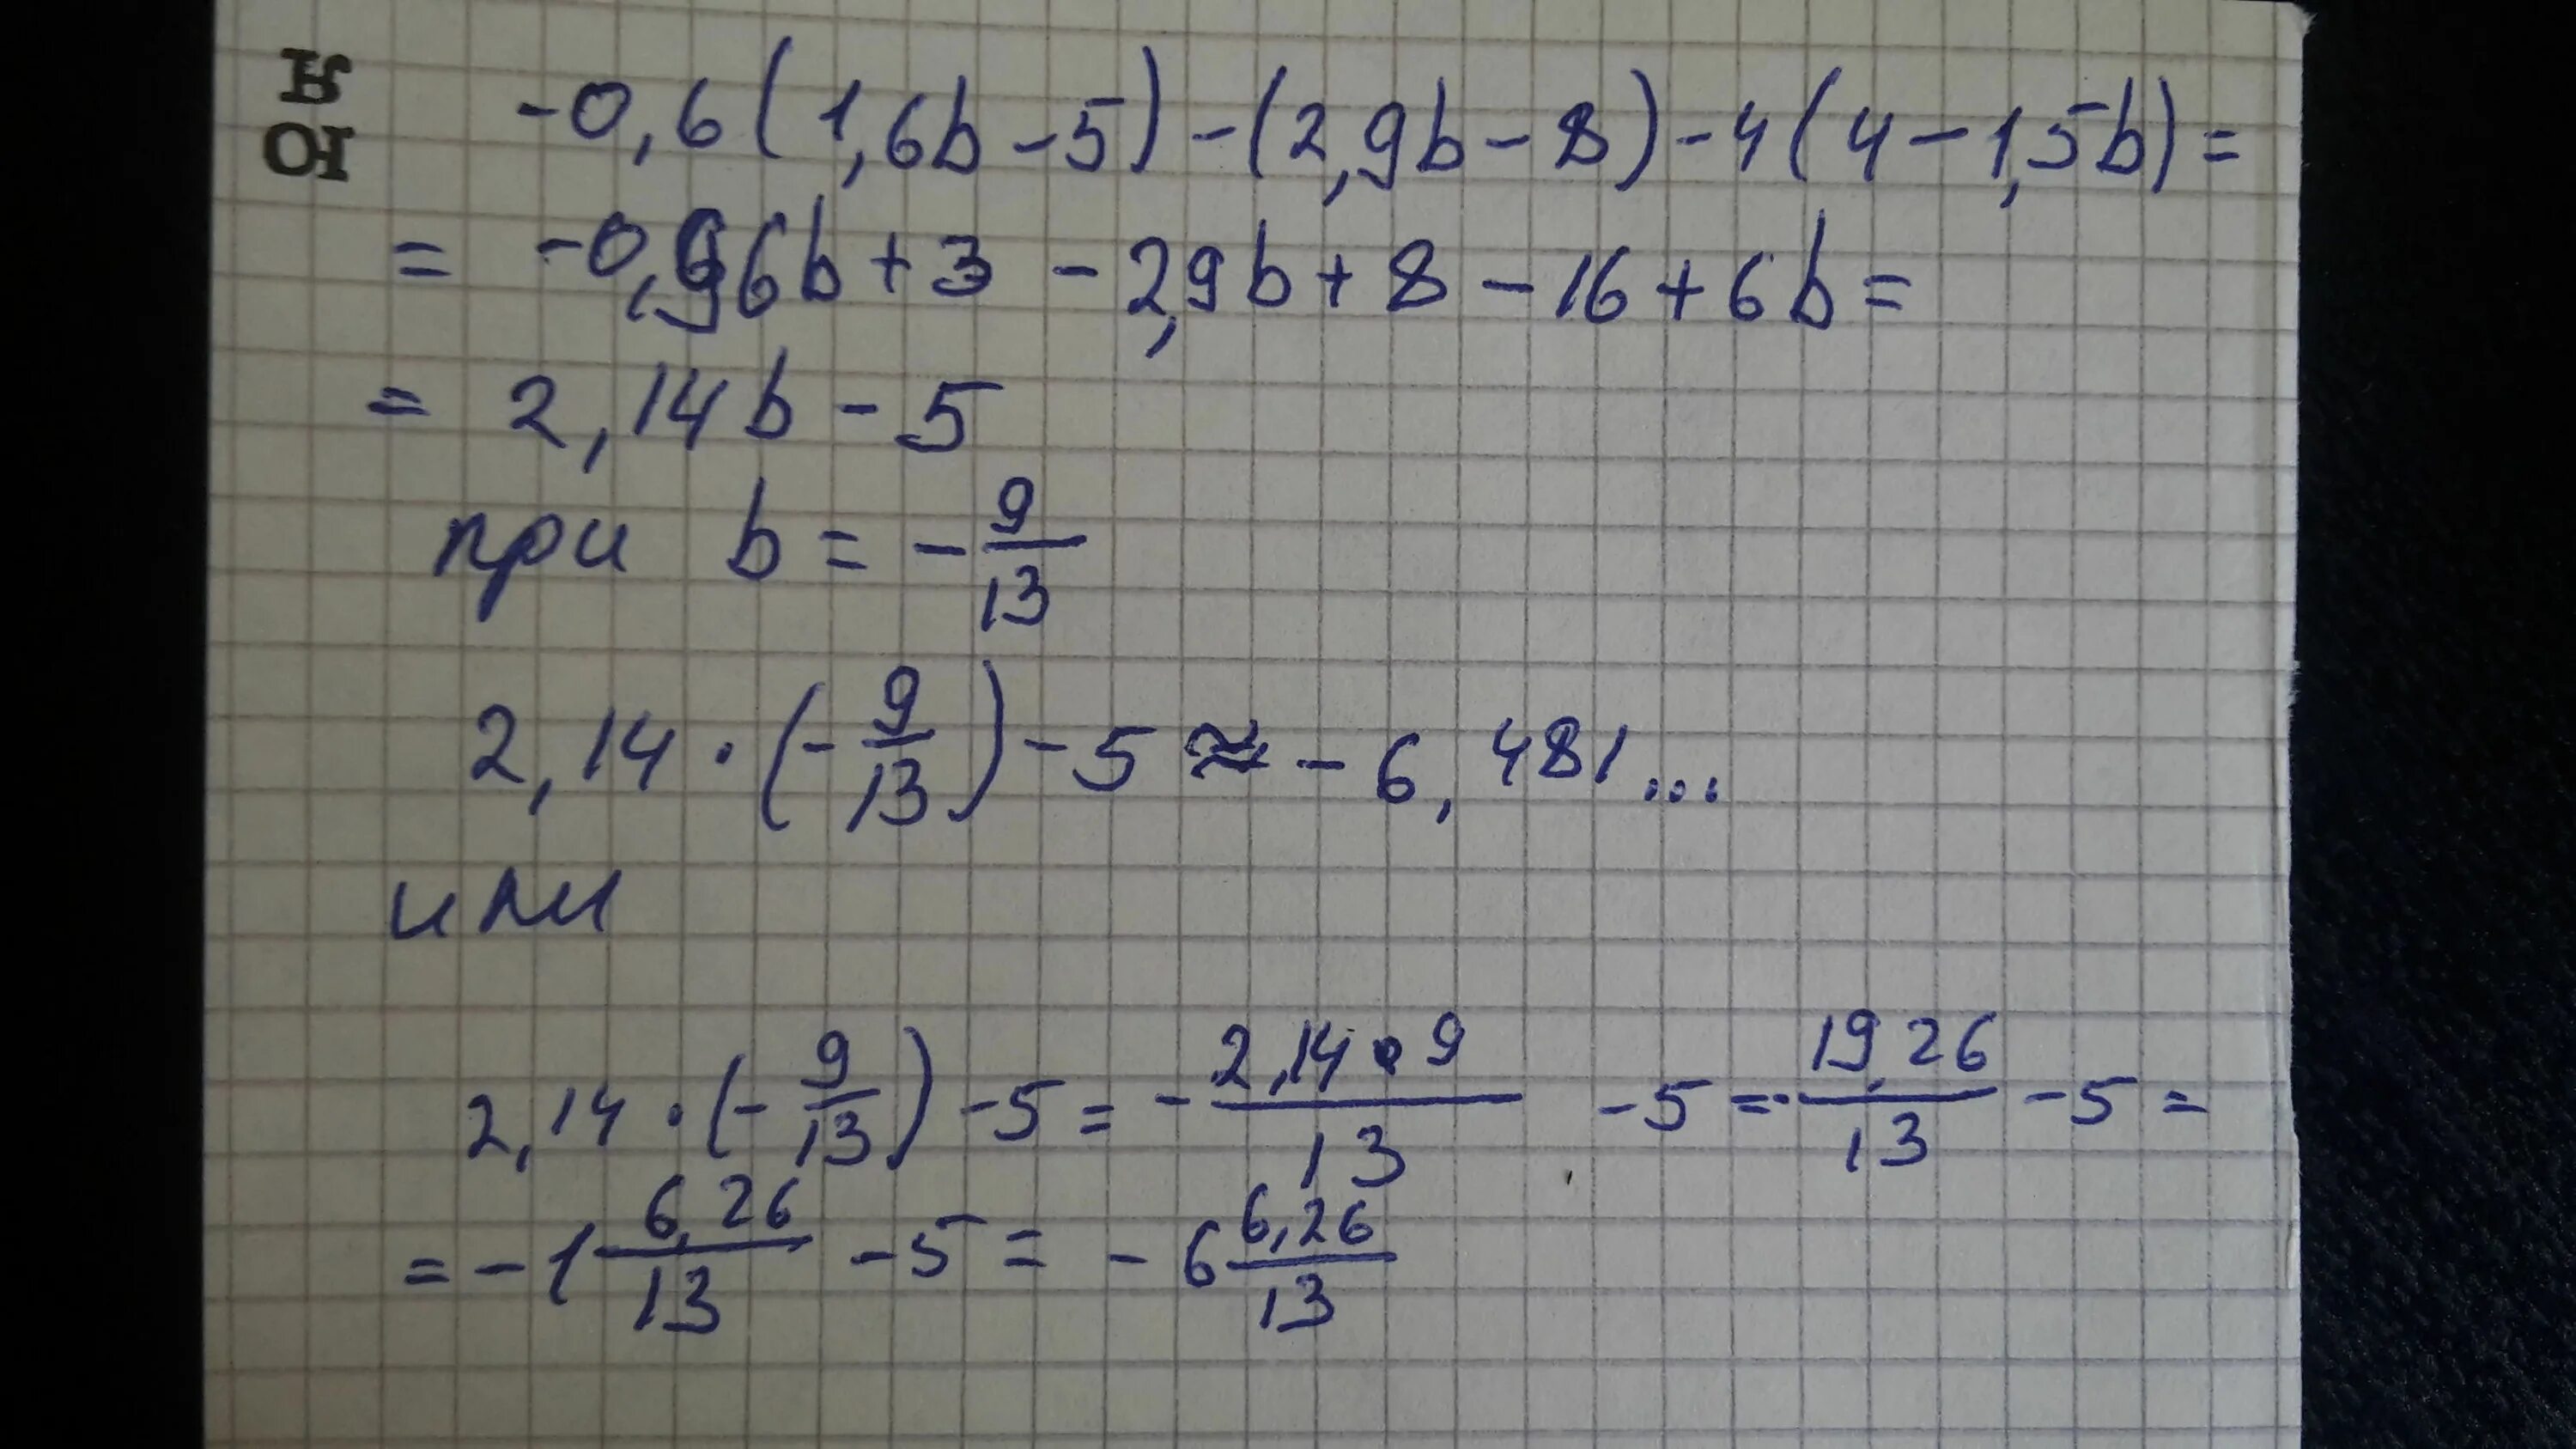 -0,6(1,6b-5)-(2,9b-8)-4(4-1,5b)=
= -0,96b+3 -2,9b+8-16+6b=
= 2,14b-5
при b = -9/13
2,14·(-9/13)-5 ≈ -6,481...
или
2,14·(-9/13)-5 = -2,14·9/13 -5 = -19,26/13 -5 =
= -1 6,26/13 -5 = -6 6,26/13
Я
Ю